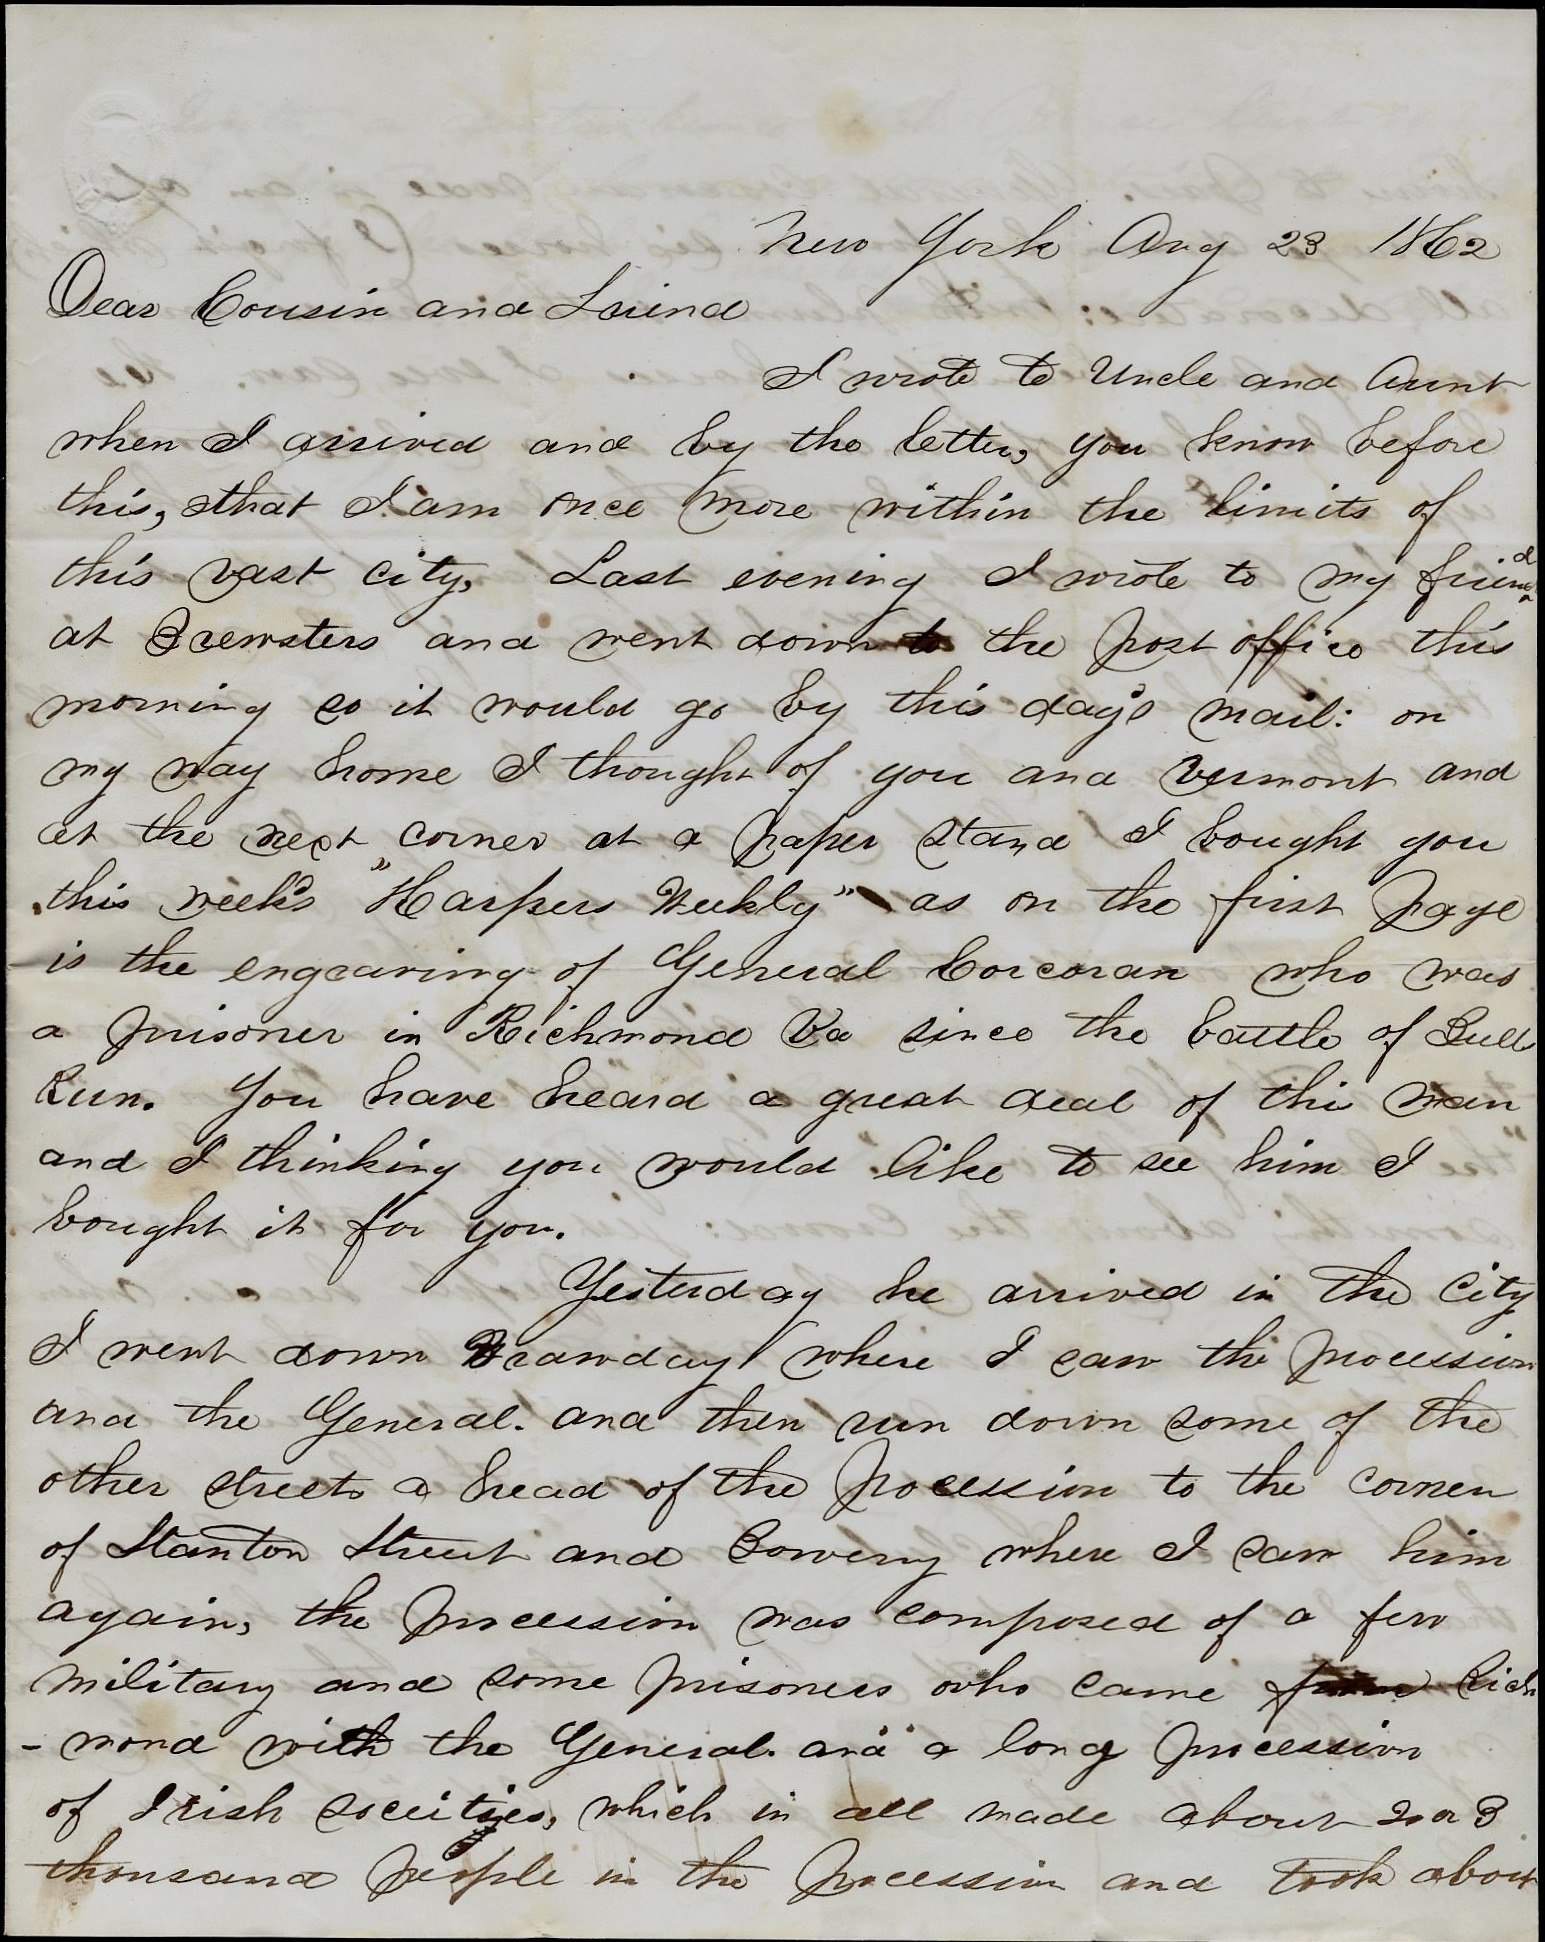 New York Aug 23 1862
Dear Cousin and Friend
I wrote to Uncle and Aunt
when I arrived and by the letter, you know before
this, that I am once more within the limits of
this vast city, Last evening I wrote to my friend
at Brewsters and went down to the post office this
morning so it would go by this day's mail: on
my way home I thought of you and Vermont and
at the next corner at a paper stand I bought you
this week's "Harpers Weekly" as on the first page
is the engraving of General Corcoran who was
a prisoner in Richmond Va since the battle of Bull
Run. You have heard a great deal of this man
and I thinking you would like to see him I
bought it for you.
Yesterday he arrived in the City
I went down Brawday where I saw the procession
and the General. and then run down some of the
other streets a head of the procession to the corner
of Stanton Street and Bowery where I saw him
again, the procession was composed of a few
military and some prisoners who came from Rich
-mond with the General. and a long procession
of Irish societies, which in all made about 2 or 3
thousand people in the procession and took about